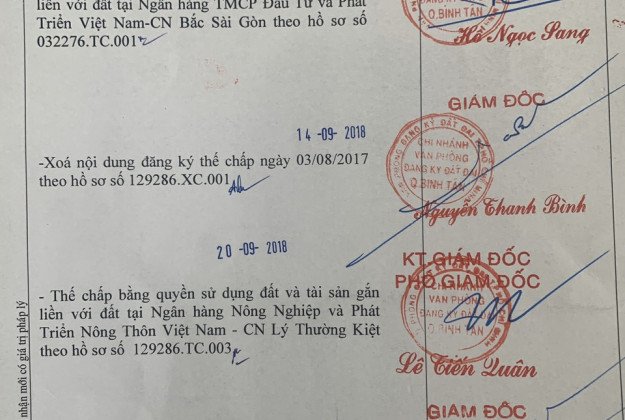 liền với đất tại Ngân hàng TMCP Đầu Tư và Phát
Triển Việt Nam-CN Bắc Sài Gòn theo hồ sơ số
032276.TC.001
Q.BÌNH TÂN
Hồ Ngọc Sang
GIÁM ĐỐC
14 -09- 2018
-Xoá nội dung đăng ký thế chấp ngày 03/08/2017
theo hồ sơ số 129286.XC.001
CHI NHÁNH
VĂN PHÒNG
ĐĂNG KÝ ĐẤT ĐAI
Q.BÌNH TÂN
Nguyễn Thanh Bình
20 -09- 2018
KT.GIÁM ĐỐC
PHÓ GIÁM ĐỐC
- Thế chấp bằng quyền sử dụng đất và tài sản gắn
liền với đất tại Ngân hàng Nông Nghiệp và Phát
Triển Nông Thôn Việt Nam - CN Lý Thường Kiệt
theo hồ sơ số 129286.TC.003
CHI NHÁNH
VĂN PHÒNG
ĐĂNG KÝ ĐẤT ĐAI
Q.BÌNH TÂN
Lê Tiến Quân
GIÁM ĐỐC
nhận mới có giá trị pháp lý